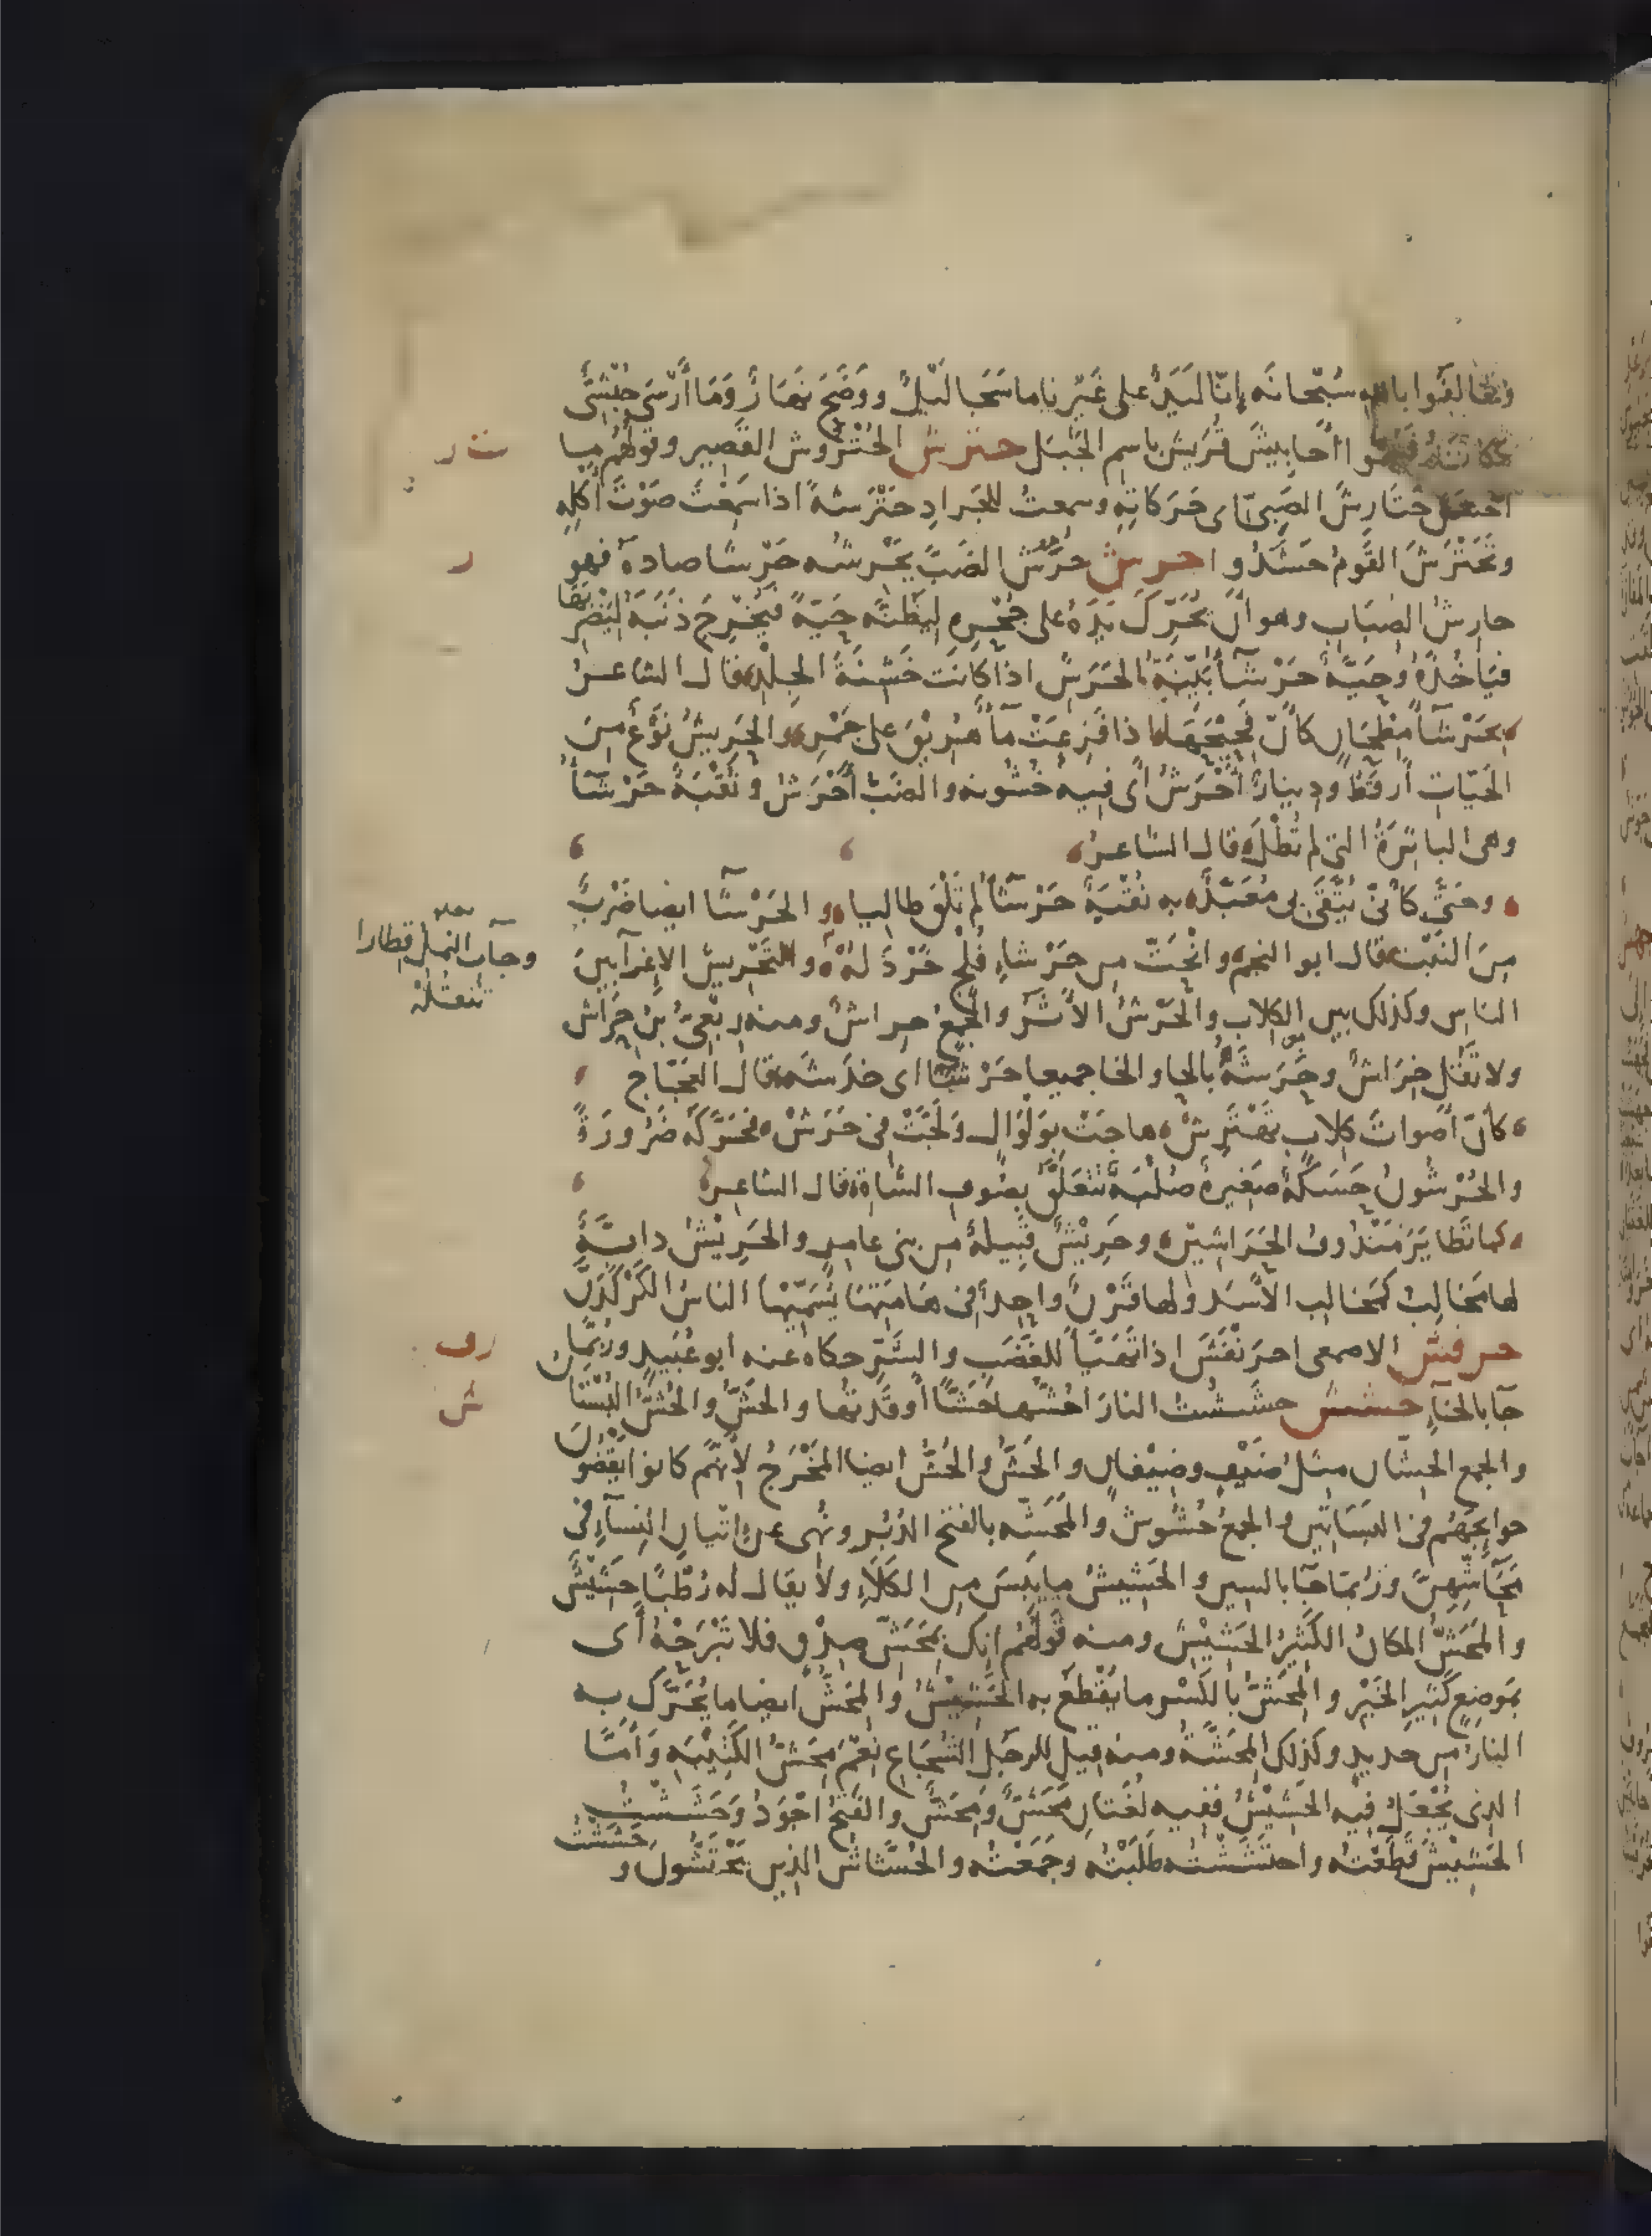 وتحالفوا بالله سُبْحانَه إنّا لَيَدٌ على غَيْرِنا ما سَجَا لَيْلٌ ووَضَحَ نَهَارٌ وَمَا أَرْسَى حُبْشِىٌّ
مكانَهُ فسموا أَحَابِيشَ قُرَيش باسم الجَبَل حترش الحُتْرُوش القَصِير وقولُهُم ما
أحسَنَ حَتَارِشَ الصَّبِىّ اى حَرَكَاتِهِ وسمِعتُ للجَرادِ حَتْرَشَةً اذا سَمِعْتَ صَوْتَ أَكْلِهِ
وتَحَتْرَشَ القَومُ حَشَدُوا حرش حَرَشَ الضَبَّ يَحْرِشُه حَرْشًا صادهُ فهو
حارِشُ الضِبَابِ وهو أنْ يُحَرِّكَ يَدَهُ على جُحْرِهِ لِيَظُنَّه حَيّةً فيُخْرِجَ ذَنَبَهُ لِيَضْرِبَهَا
فيَأخُذَهُ وحَيَّةٌ حَرْشَآءُ بَيِّنَةُ الحَرَشِ اذا كانَت خَشِنَةَ الجِلْدِ قال الشاعرُ
بِحَرْشَآءَ مِطْحَانٍ كأنَّ فَحِيْحَهَا اذا فَزِعَتْ مآءٌ هُرِيْقَ على جَمْرِ والحَرِيشُ نَوْعٌ مِنَ
الحَيّاتِ أَرقَطُ ودِينارٌ أَحْرَشُ أى فيه خُشُونه والضَبُّ أَحْرَشُ ونُقْبَةٌ حَرْشَآءُ
وهى الباثِرَةُ التى لم تُطْلَ قال الشاعرُ
وحَتَّى كأنِّى يَتَّقِى بى مُعَبَّدٌ به نُقْبَةٌ حَرْشَآءُ لم تَلْقَ طالِيا والحَرْشَآءُ ايضا ضَرْبٌ
مِنَ النَبْتِ قال ابو النجم وانْحَتَّ مِن حَرْشاءِ فَلْجٍ خَرْدَلُهْ والتَحْرِيشُ الاغرآ بينَ
وجآت النمل قِطارا
تَنْقُلُهْ
الناسِ وكذلك بين الكلابِ والحَرْشُ الأَثَرُ والجَمعُ حِراشٌ ومنه رِبْعِىُّ بنُ حِرَاشٍ
ولا تَقُل خِرَاشٌ وحَرَشَهُ بالحا والخا جميعا حَرْشًا اى خدَشَه قال العجّاج
كأنَّ أَصواتَ كِلابٍ تَهْتَرِشْ هاجَتْ بوَلْوَالٍ ولَجَّتْ فى حَرَشْ فحَرَّكَهُ ضَرُورَةً
والحُرْشُونُ حَسَكَةٌ صَغيرةٌ صُلْبَةٌ تتعَلَّقُ بصُوفِ الشاةِ قال الشاعر
كما تَطايَرَ مَنْدُوفُ الحَرَاشِيْنِ وحَرِيْشٌ قَبِيلةٌ مِن بنى عامِرٍ والحَرِيْشُ دابّةٌ
لها مَخالِبُ كمخالِبِ الأَسَدِ ولها قَرْنٌ واحِدٌ فى هامَتِها يُسَمِّيْها الناسُ الكَرْكَدَّن
حرفش الاصمعى احرَنْفَشَ اذا تَهَيَّأَ للغَضَبِ والشَّرِّ حكاه عنه أبو عُبَيدٍ ورُبَّمَا
جآ بالخآءِ حشش حشَشْتُ النارَ أَحُشُّها حَشًّا أَوقَدتُها والحَشُّ والحُشُّ البُسْتَان
والجمع الحِشّان مثلُ ضَيْفٍ وضِيْفانٍ والحَشُّ والحُشُّ ايضا المَخْرَجُ لأَنّهُم كانوا يَقْضُونَ
حوايجَهُم فى البسَاتين والجمعُ حُشُوشٌ والمَحَشَّه بالفتح الدُبُر ونُهِى عن إتيانِ النِسآءِ فى
مَحَاشِّهِنَّ ورُبّما جآ بالسين والحَشِيشُ ما يَبِسَ مِن الكَلَإِ ولا يقال له رُطْبًا حَشِيْشٌ
والمَحَشُّ المكانُ الكَثِيرُ الحَشِيْشِ ومنه قَولُهُم انك بمَحَشِّ صِدْقٍ فلا تَبْرَحْهُ أَى
بمَوضِعٍ كَثِيرِ الخَيْرِ والمِحَشُّ بالكَسْرِ ما يُقْطَعُ به الحَشِيْشُ والمِحَشُّ ايضا ما يُحَرَّكُ به
النارُ مِن حديدٍ وكذلك المِحَشَّةُ ومنه قيل للرجُلِ الشُجَاعِ نِعْمَ مِحَشُّ الكَتِيْبَهِ وَأَمَّا
الذى يُجْعَلُ فيه الحَشِيْشُ ففيه لُغَتانِ مَحَشٌّ ومِحَشٌّ والفَتْحُ أجْوَدُ وَحَشَشْتُ
الحَشِيْشَ قَطَعْتُه واحتَشَشْتُه طَلَبْتُه وجَمَعْتُه والحُشَّاشُ الذين يَحْتَشُّونَ وحَشَشْتُ